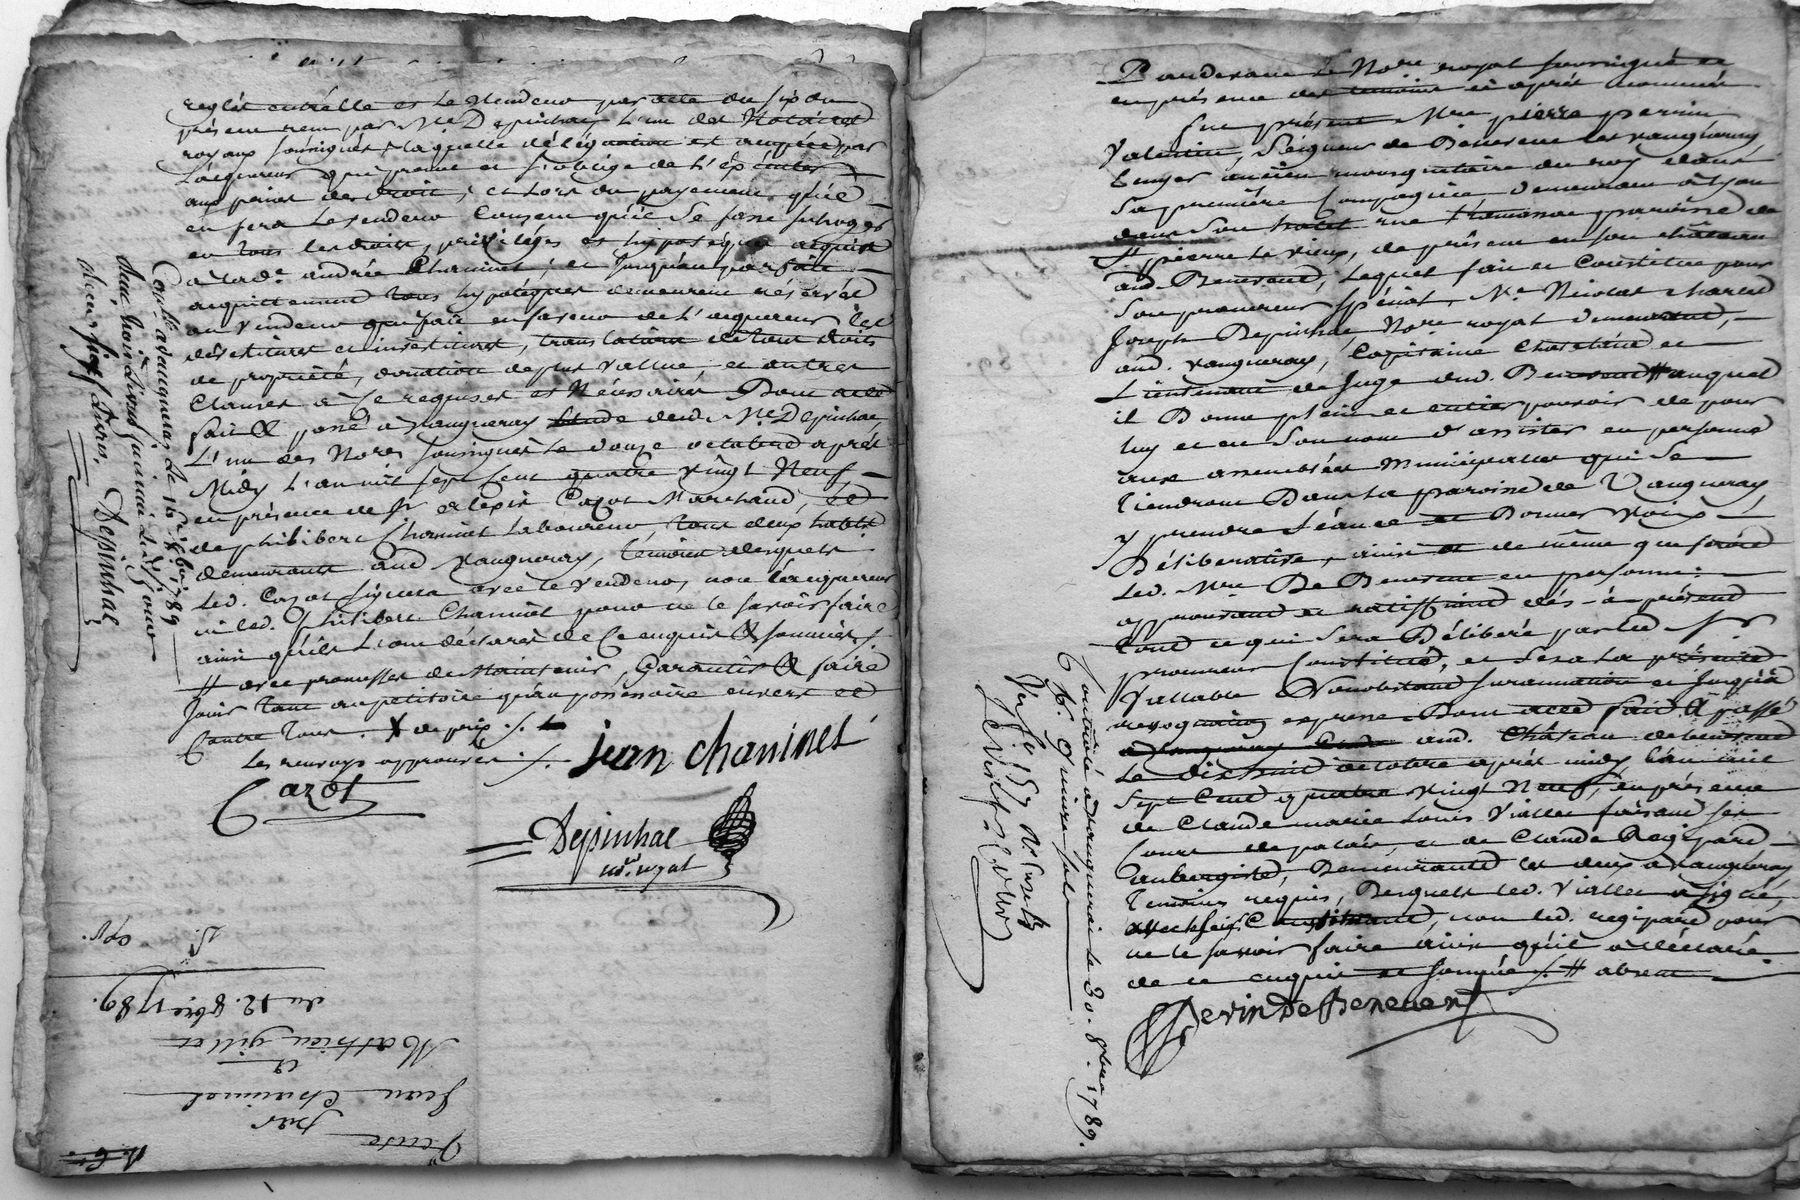 reglée entrélle et le Vendeur par acte du six du
présent reçu par Me Depinhac l'un des Notaires
royaux soussignés, laquelle délégation est acceptée par
L'acquereur qui promet et s'oblige de l'éxécuter
aux peines de droit, et lors du payement qu'il
en fera le vendeur consent qu'il se fasse subroger
en tous les droits, priviléges et hypotéques acquis
à lade. andrée Chaminet, et jusqu'au parfait
acquittement tous hypotéques demeurent réservés
au vendeur qui fait en faveur de l'acquereur les
dévestitures et investitures, translations de tous droits
de propriété, donation de plus vallue, et autres
Clauses à ce requises et Nécessaires Dont acte
fait & passé à Vaugneray Etude dud. Me Depinhac,
L'un des Nores soussignés le douze octobre après
Midy l'an mil sept cent quatre vingt Neuf,
en présence de Sr alexis Cazot Marchand, et
de philibert Chaminet laboureur tous deux
demeurants aud Vaugneray, témoins desquels
led. Cazot signera avec le vendeur, non l'acquereur
ni led. philibert Chaminet pour ne le savoir faire
ainsi qu'ils l'ont déclaré de ce enquis & sommés ./.
# avec promesses de Maintenir, Garantir & faire
jouir tant au petitoire qu'au possessoire envers et
Contre tous. X de prix ./.
Les renvoys approuvés ./.
jean chaminet
Cazot
Depinhac
nore. royal
Contlé. à vaugneray le 16. 8bre. 1789
deux sixes livres,
Depinhac
Vente
par
Jean Chaminet
à
Mathieu gillet
du 12. 8bre 1789.
Pardevant le Nore royal soussigné et
en présence des témoins ci après nommés
fut présent Mre pierre perrin
Valentin, Seigneur de Benevent les vaugneray
ancien mousquetaire du roy dans
sa première Compagnie demeurant à Lyon
dans son hotel rue paroisse de
St pierre le vieux, de présent en son château
aud. Benevent, lequel fait et Constitue pour
Son procureur spécial, Me Nicolas charles
Joseph Depinhac Nore royal demeurant,
aud. vaugneray, Capitaine Chatelain et
Lieutenant de Juge dud. Benevent # auquel
il Donne plein et entier pouvoir de pour
luy et en son nom d'assister en personne
aux assemblées Municipales qui se
tiendront Dans la paroisse de Vaugneray,
y prendre séance et Donner voix
Délibérative, ainsi et de même que feroit
led. Mre De Benevent en personne;
approuvant et ratiffiant dés-à-présent
tout ce qui sera Délibéré par led Sr
procureur Constitué, et sera la présente
Vallable Nonobstant surannation et jusqu'à
révoquation expresse Dont acte fait & passé
aud. Château de benevent
Le dixhuit octobre après midy l'an mil
Sept Cent quatre vingt Neuf, en présence
de Claude marie Louis Viallet faisant ses
Cours de palais, et de Claude Ragipard
aubergiste, Demeurants les deux à Vaugneray
témoins requis, Desquels led. Viallet a signé,
avec led. sr. Constituant, non led. ragipard pour
ne le savoir faire ainsi qu'il a déclaré
de ce enquis et sommé ./. # absent
Perrin De Benevent
Controlé à vaugneray le 30. 8bre 1789.